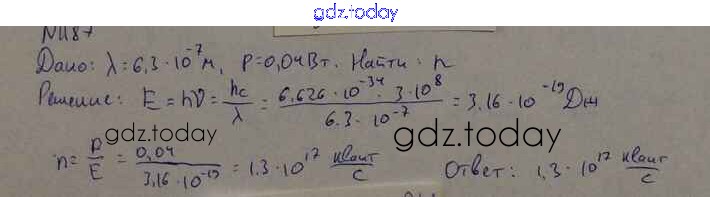 gdz.today
N1187
Дано: λ = 6,3 · 10⁻⁷ м, P = 0,04 Вт. Найти: n
Решение: E = hν = hc/λ = 6,626 · 10⁻³⁴ · 3 · 10⁸ / 6.3 · 10⁻⁷ = 3,16 · 10⁻¹⁹ Дж
gdz.today gdz.today
n = P/E = 0,04 / 3,16 · 10⁻¹⁹ = 1.3 · 10¹⁷ квант/с Ответ: 1,3 · 10¹⁷ квант/с